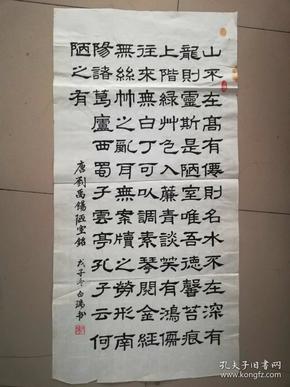 山不在高有僊則名水不在深有
龍則靈斯是陋室唯吾德馨苔痕
上階綠艸色入簾青談笑有鴻儒
往來無白丁可以調素琴閱金經
無絲竹之亂耳無案牘之勞形南
陽諸葛廬西蜀子雲亭孔子云何
陋之有
唐劉禹錫陋室銘 戊子冬白瑞书
孔夫子旧书网